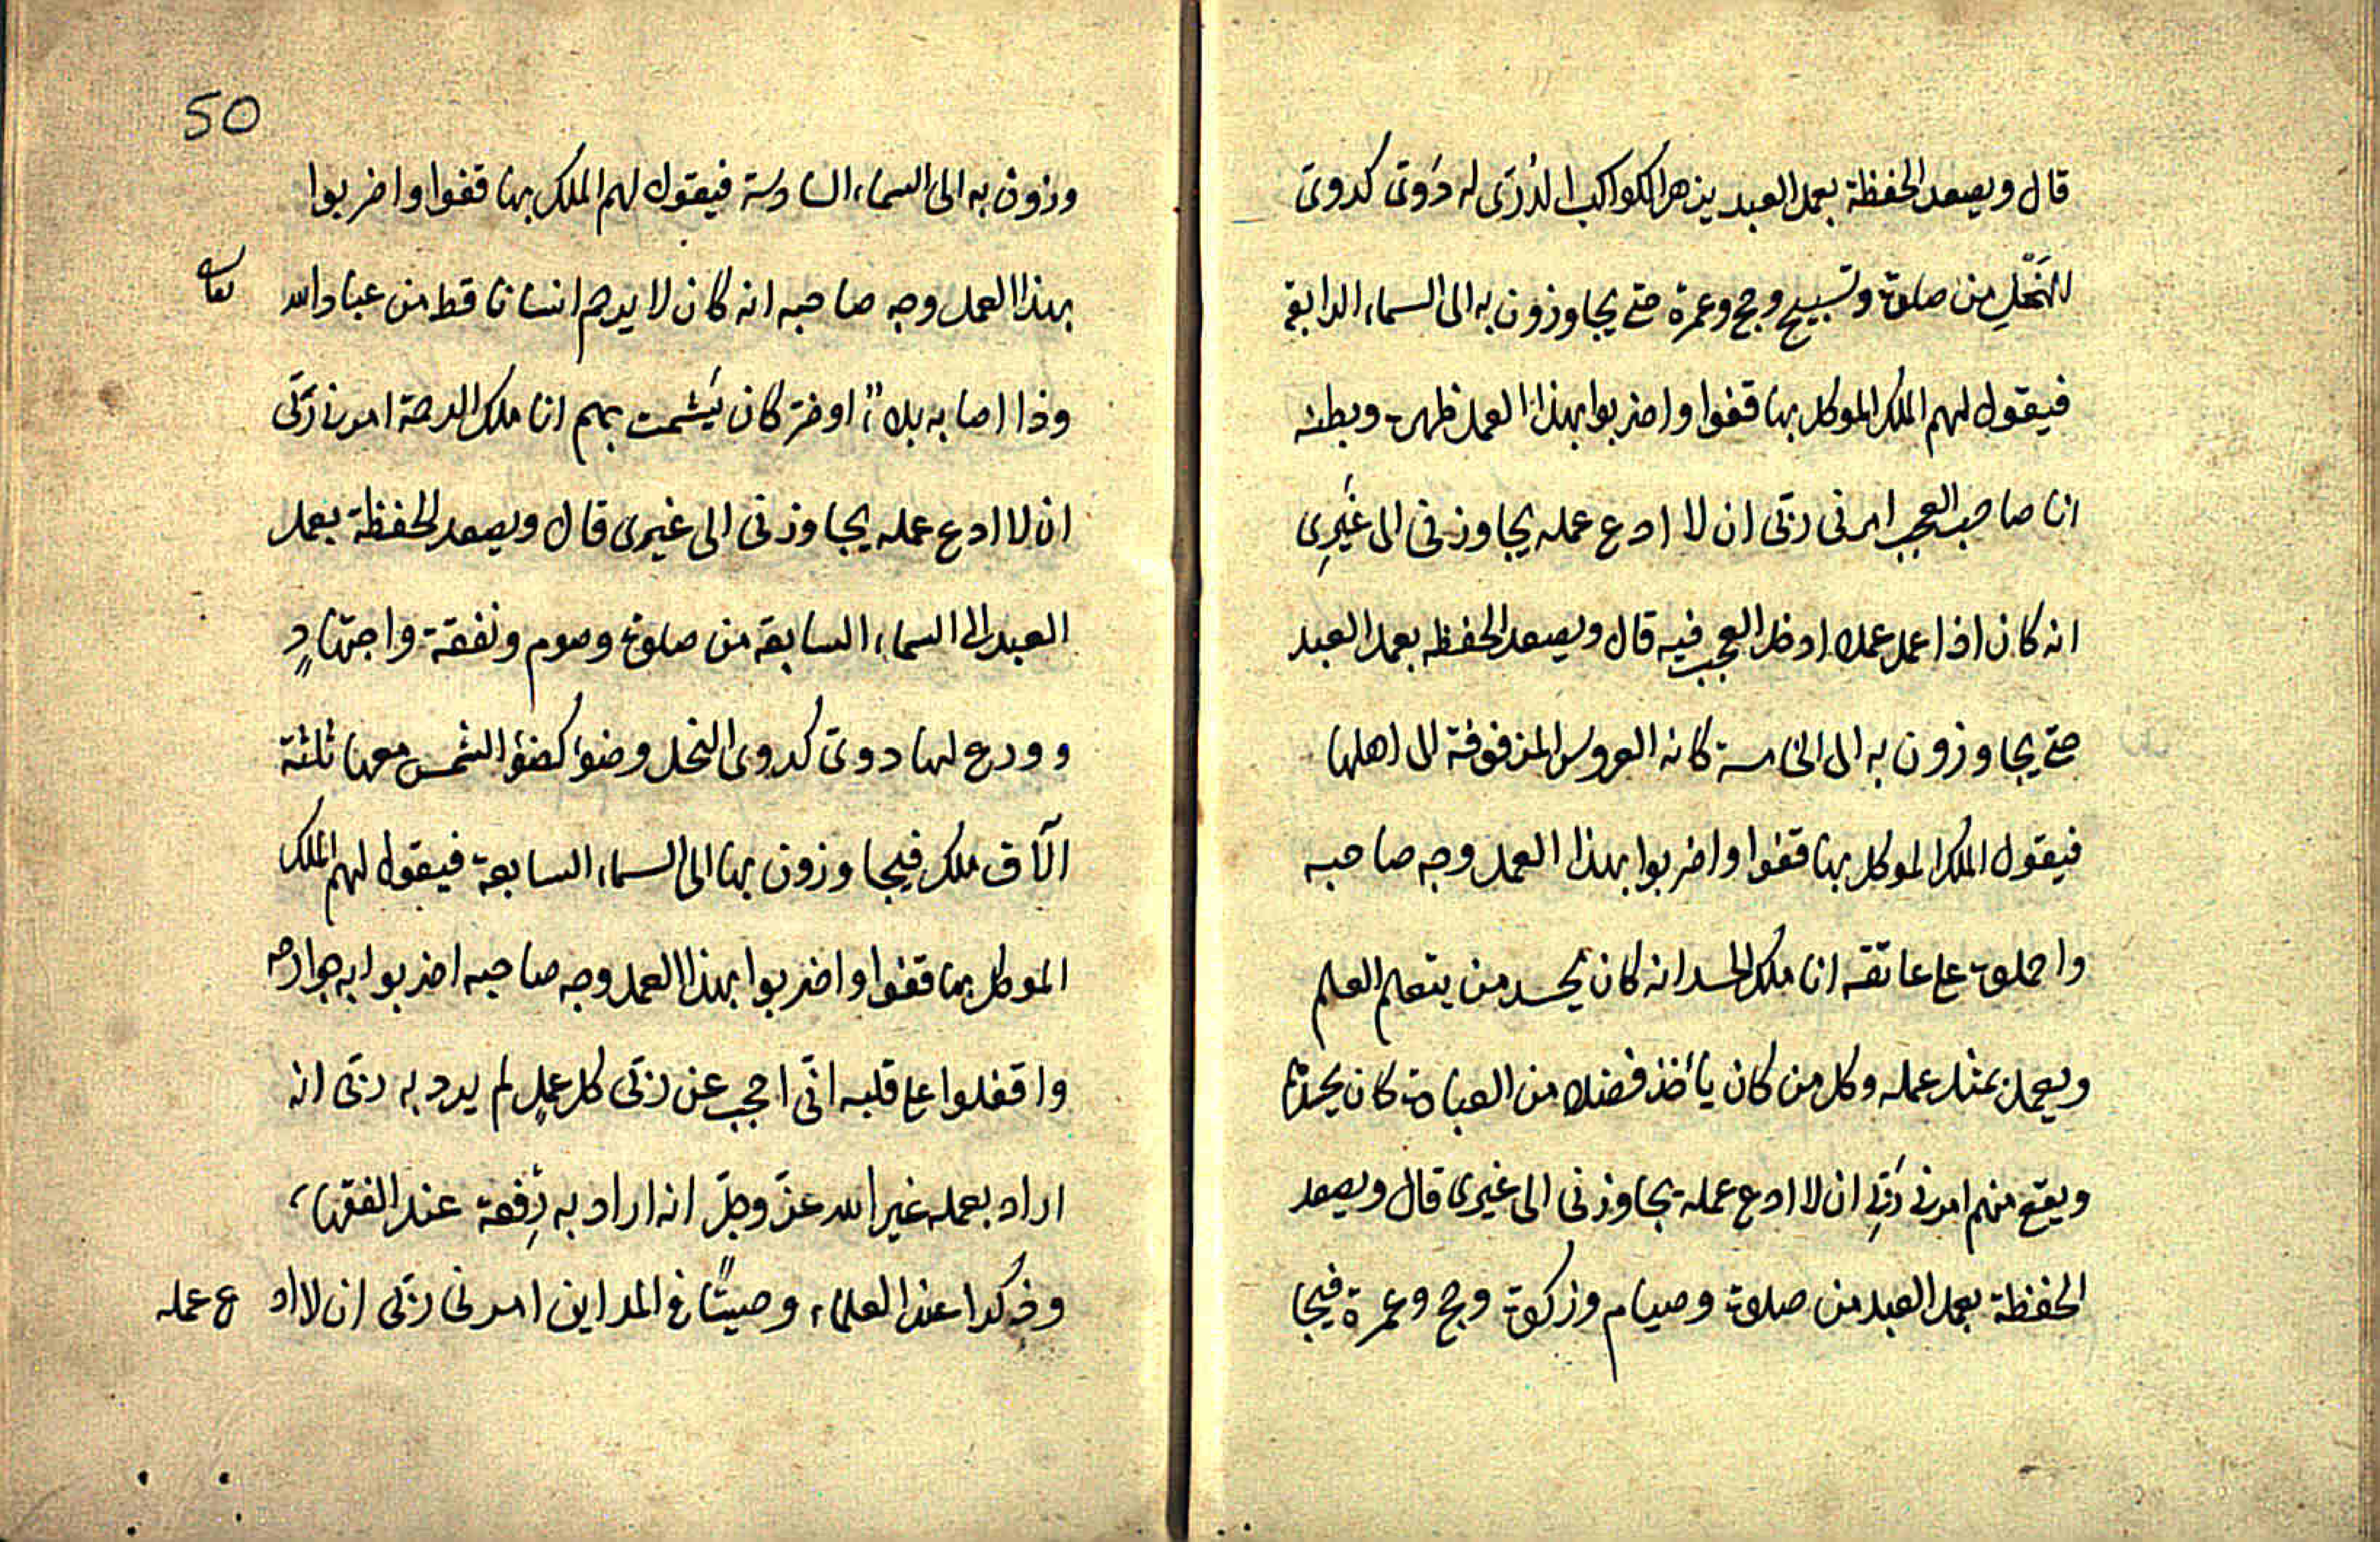 قال ويصعد الحفظة بعمل العبد يزهر الكواكب الدُرّى له دَوىّ كدوىّ
النَحْلِ من صلوة وتسبيح وحج وعمرة حتى يجاوزون به الى السماء الرابعة
فيقول لهم الملك الموكل بها قفوا واضربوا بهذا العمل ظهره وبطنه
انا صاحب العجب امرنى ربّى ان لا ادع عمله يجاوزنى الى غَيْرِى
انه كان اذا عمل عملا ادخل العجب فيه قال ويصعد الحفظه بعمل العبد
حتى يجاوزون به الى الخامسة كانه العروس المزفوفة الى اهلها
فيقول الملك الموكل بها قفوا واضربوا بهذا العمل وجه صاحبه
واحملوه على عاتقه انا ملك الحسد انه كان يحسد من يتعلم العلم
ويعمل بمثل عمله وكل من كان يأخذ فضلا من العبادة كان يحسدهم
ويقع منهم امرنى ربّى ان لا ادع عمله يجاوزنى الى غيرى قال ويصعد
الحفظة بعمل العبد من صلوة وصيام وزكوة وحج وعمرة فيجا
50
وزون به الى السماء السادسة فيقول لهم الملك بها قفوا واضربوا
بهذا العمل وجه صاحبه انه كان لا يرحم انسانا قط من عباد الله تعالى
وذا اصابه بلاءٌ اوضر كان يَشمت بهم انا ملك الرحمة امرنى ربّى
ان لا ادع عمله يجاوزنى الى غيرى قال ويصعد الحفظة بعمل
العبد الى السماء السابعة من صلوة وصوم ونفقة واجتهادٍ
وورع لها دوىّ كدوى النحل وضوء كضؤ الشمس معها ثلثة
الآف ملك فيجاوزون بها الى السماء السابعة فيقول لهم الملك
الموكل بها قفوا واضربوا بهذا العمل وجه صاحبه اضربوا به جوارحه
واقفلوا على قلبه انّى احجب عن ربّى كل عملٍ لم يرد به ربّى انه
اراد بعمله غير الله عزّ وجلّ انه اراد به رِفعة عند الفقهاء
وذِكرا عند العلماء وصيتًا فى المداين امرنى ربّى ان لا ادع عمله